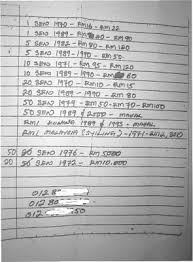 1 SEN 1970 - RM16 - RM 22
1 SEN 1989 - RM 80 - RM 90
5 SEN 1982 - RM 90 - RM 120
5 SEN 1989 - 1990 - RM 50
10 SEN 1971 - RM 95 - RM 120
10 SEN 1989 - 1990 - RM 60
20 SEN 1970 - RM 10 - RM 15
20 SEN 1989 - 1990 - RM 80
50 SEN 1989 - 1990 - RM 70 - RM100
50 SEN 1989 & 2000 - MAHAL
RM1 KUNING 1989 & 1993 - MAHAL
RM1 MALAYSIA (SYILING) - 1971 -
50 SEN 1976 - RM 5000
20 SEN 1972 - RM10.000
012 8
012 80
012 50